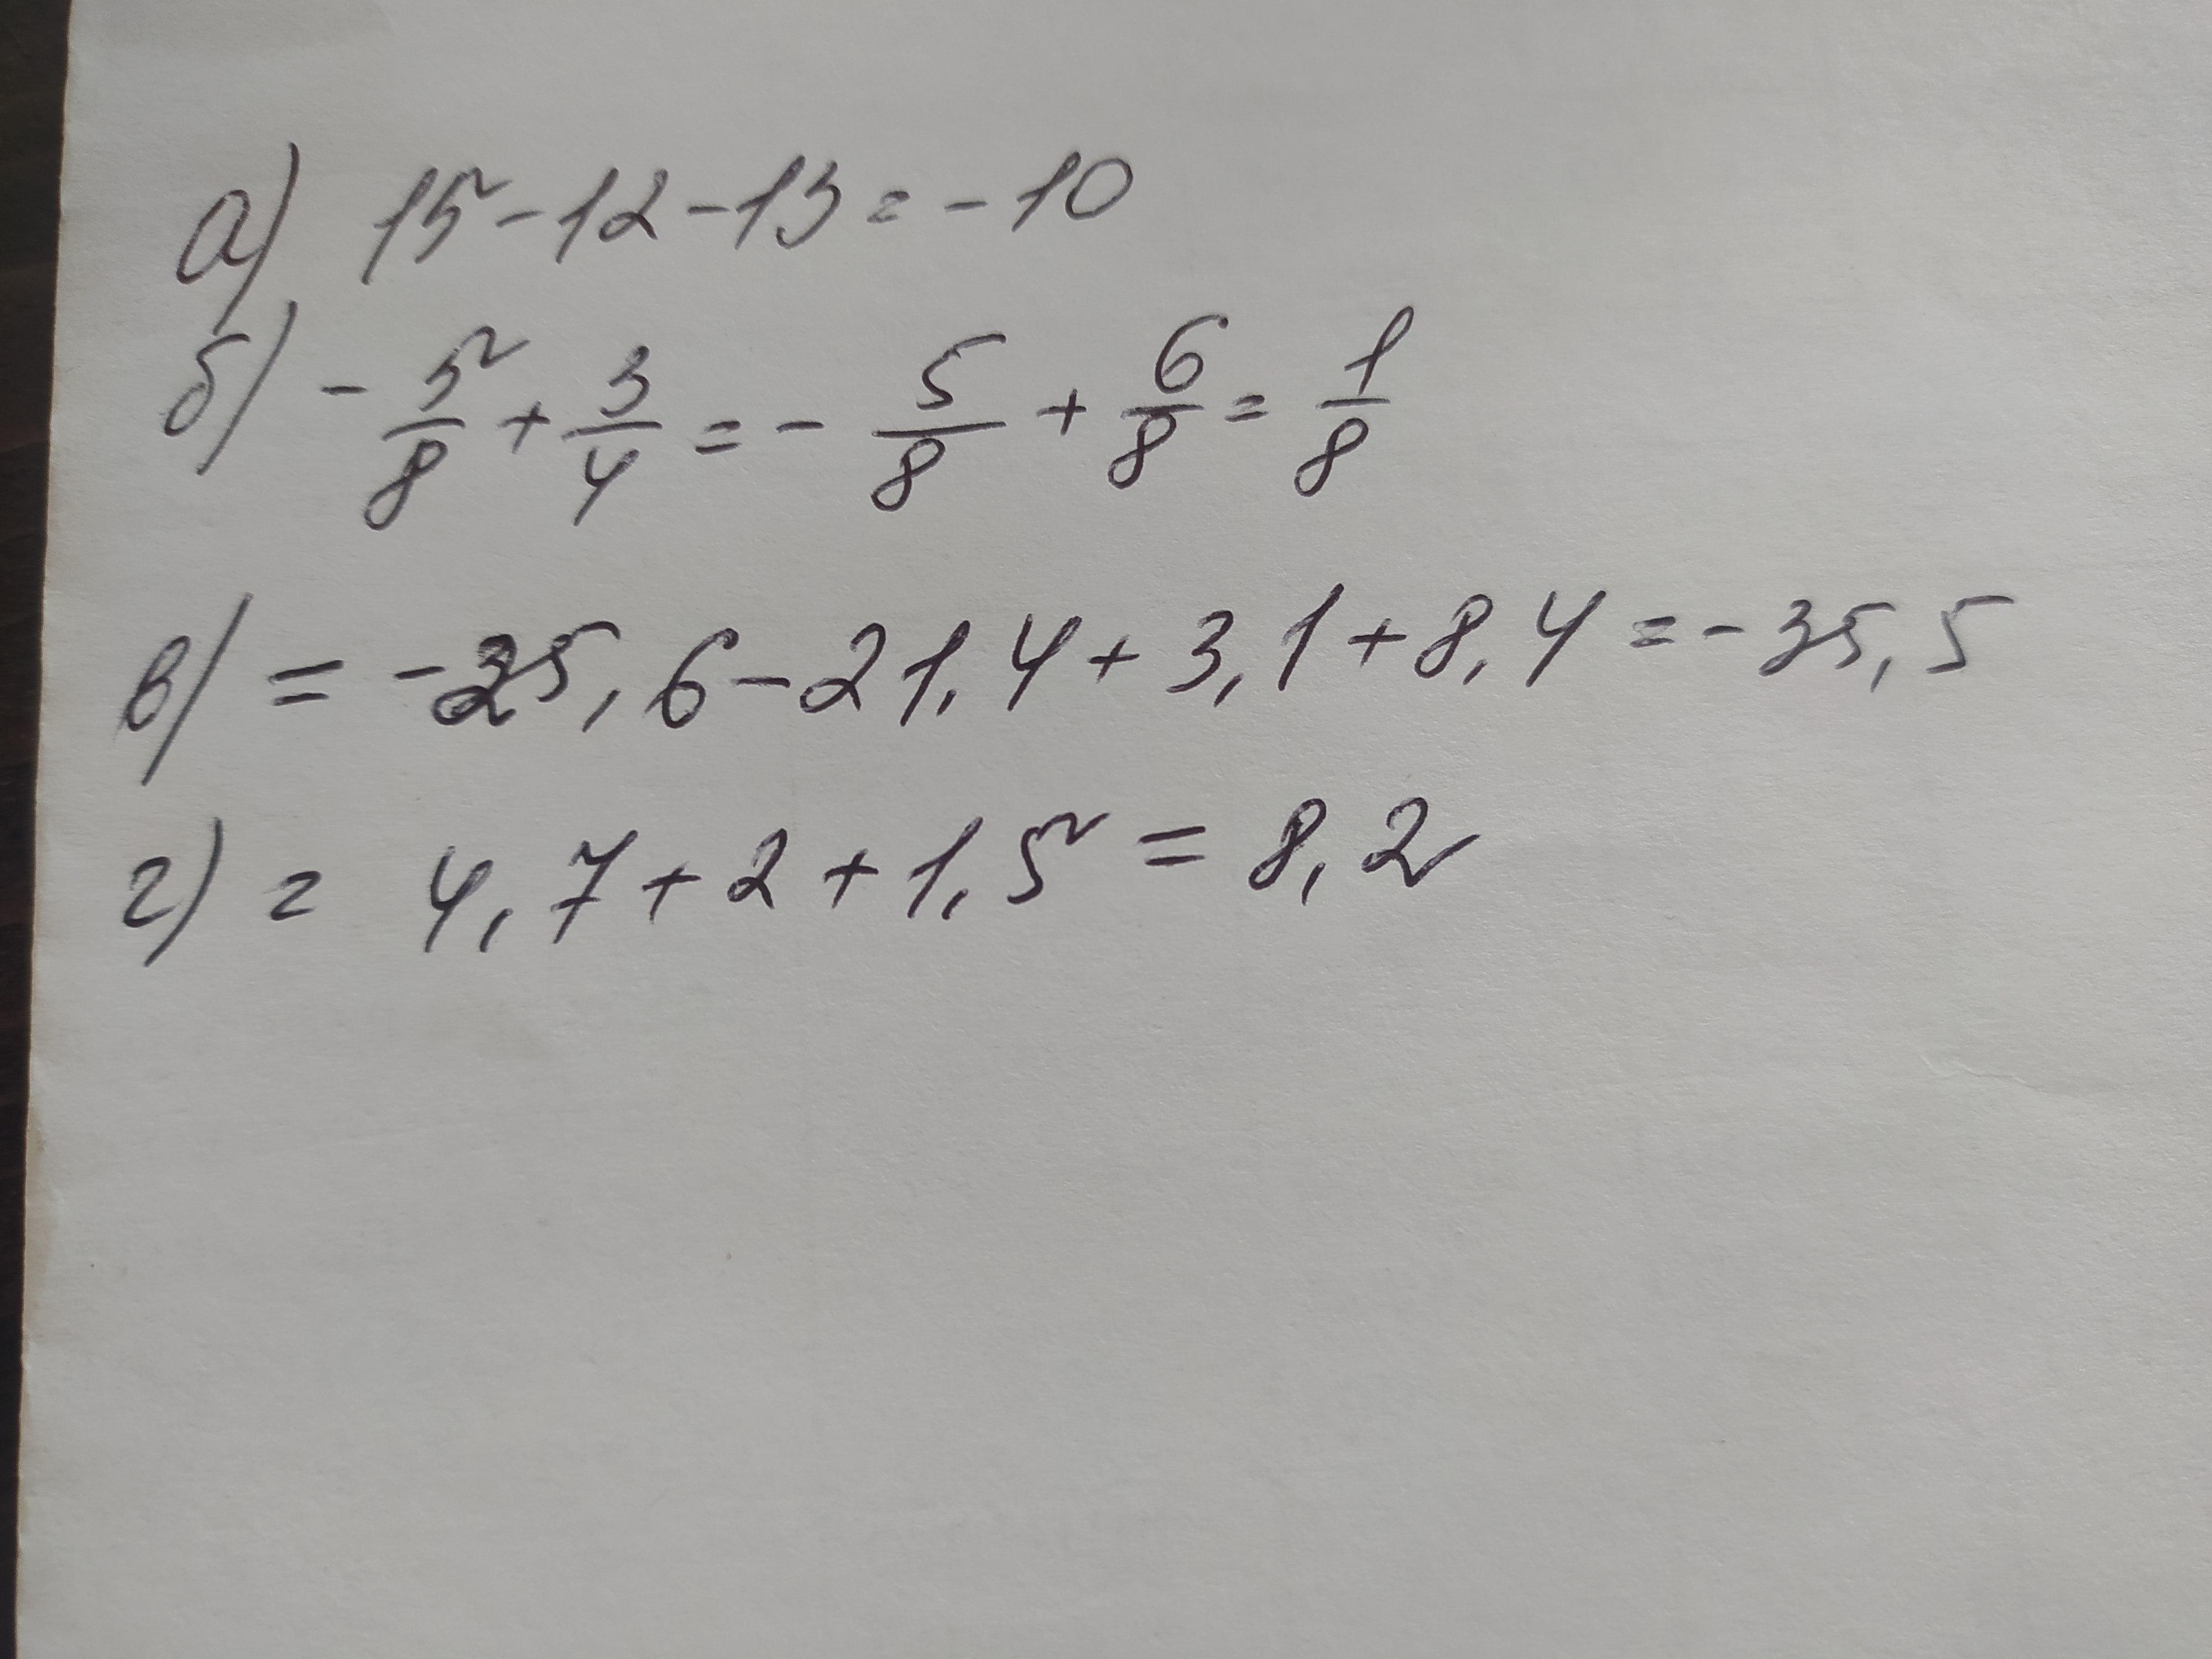 а) 15-12-13=-10
б) -5/8+3/4=-5/8+6/8=1/8
в) =-25,6-21,4+3,1+8,4=-35,5
г) = 4,7+2+1,5=8,2